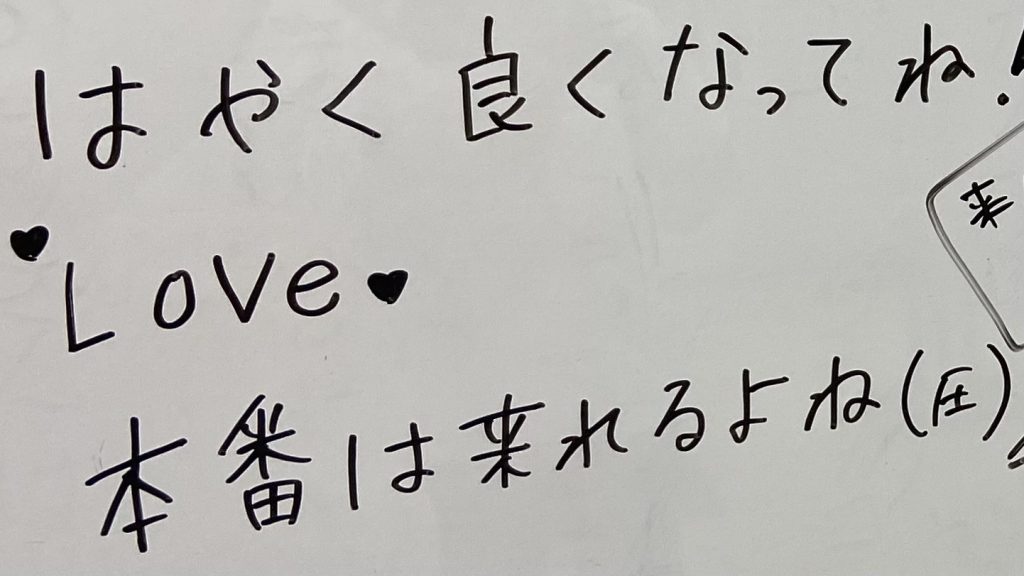 はやく良くなってね!
♥Love♥
来
本番は来れるよね(圧)